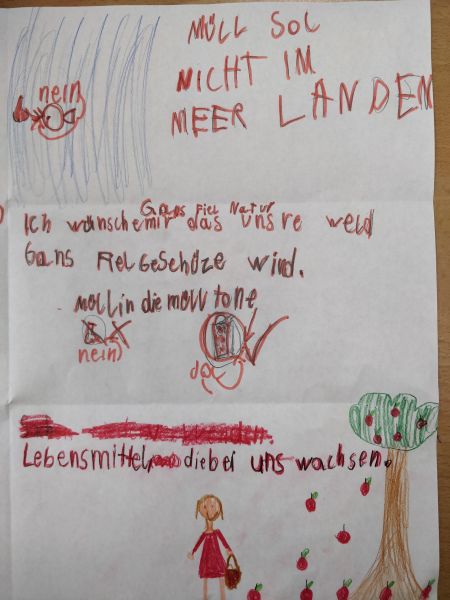 MÜLL SOL
NICHT IM
MEER LANDEN
nein
Gans Fiel Natur
Ich wünschemir das unsre weld
Gans FielGeschüze wird.
müllin die müll tone
nein
Lebensmittel diebei uns wachsen.